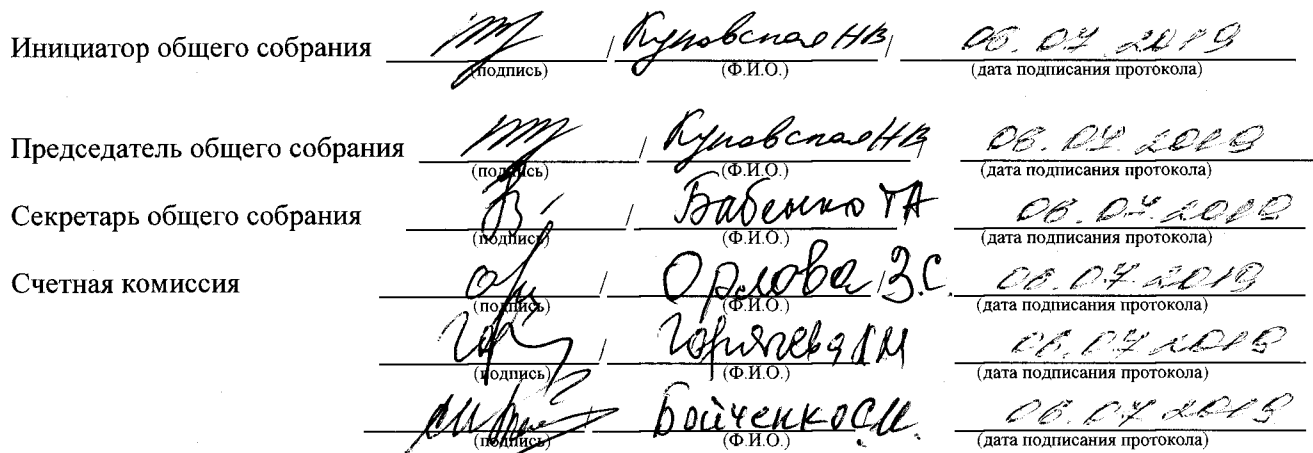 Инициатор общего собрания / Куновская НВ / 06.07.2019
(подпись) (Ф.И.О.) (дата подписания протокола)
Председатель общего собрания / Куновская НВ 06.07.2019
(подпись) (Ф.И.О.) (дата подписания протокола)
Секретарь общего собрания / Бабенко ТА 06.07.2019
(подпись) (Ф.И.О.) (дата подписания протокола)
Счетная комиссия / Орлова З.С. 06.07.2019
(подпись) (Ф.И.О.) (дата подписания протокола)
/ 06.07.2019
(подпись) (Ф.И.О.) (дата подписания протокола)
Бойченко С.И. 06.07.2019
(подпись) (Ф.И.О.) (дата подписания протокола)